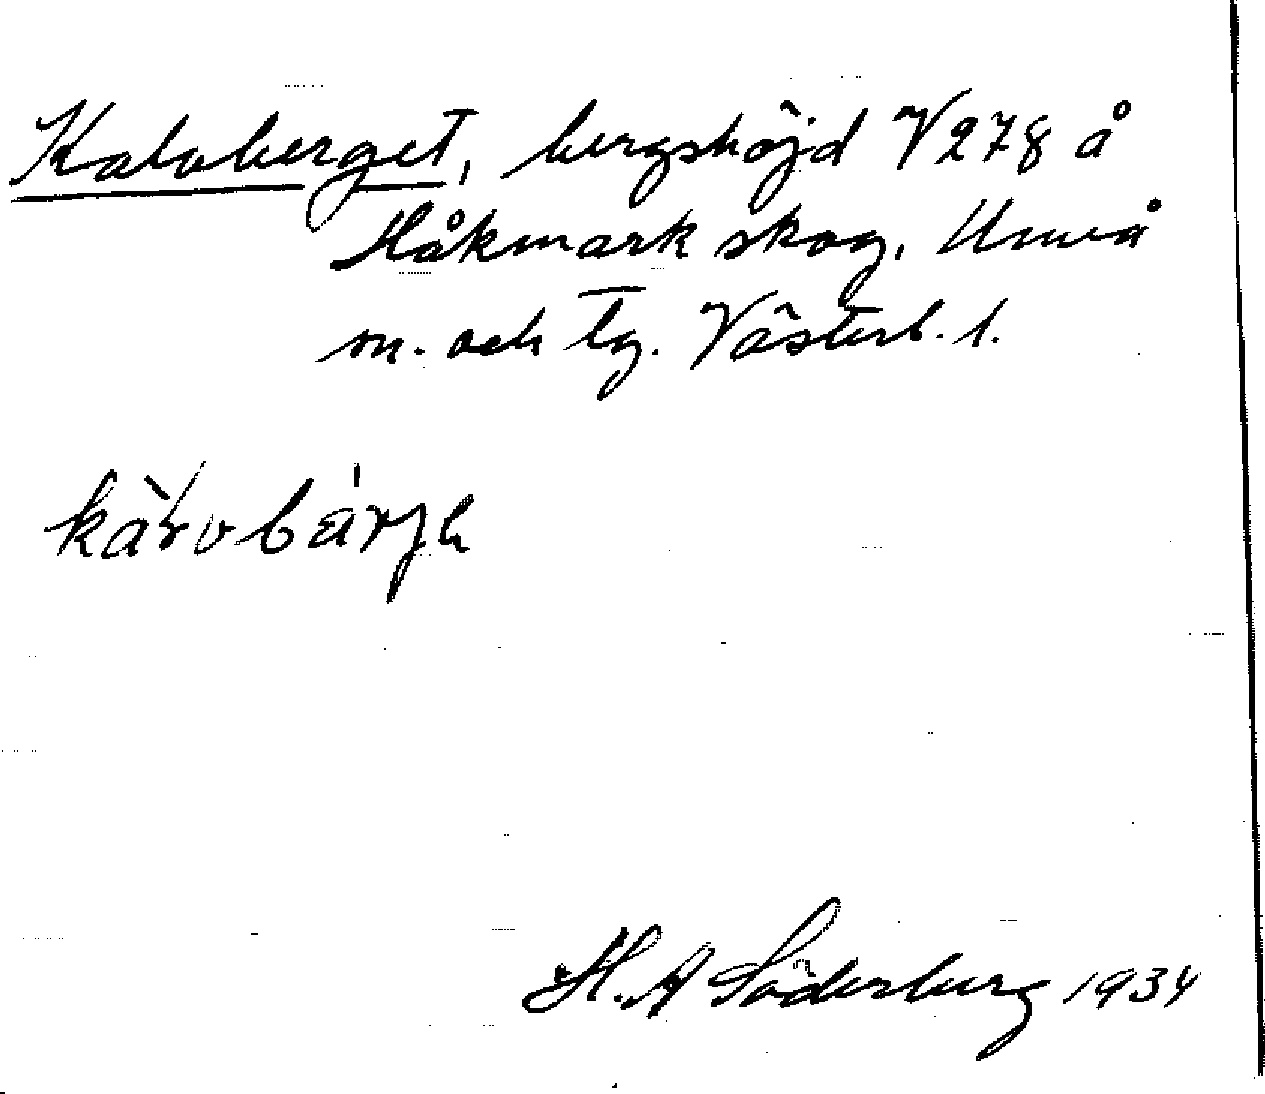 Kalvberget, bergshöjd V278 å
Håkmark skog, Umeå
sn. och tg. Västerb. l.
H. A Söderberg 1934